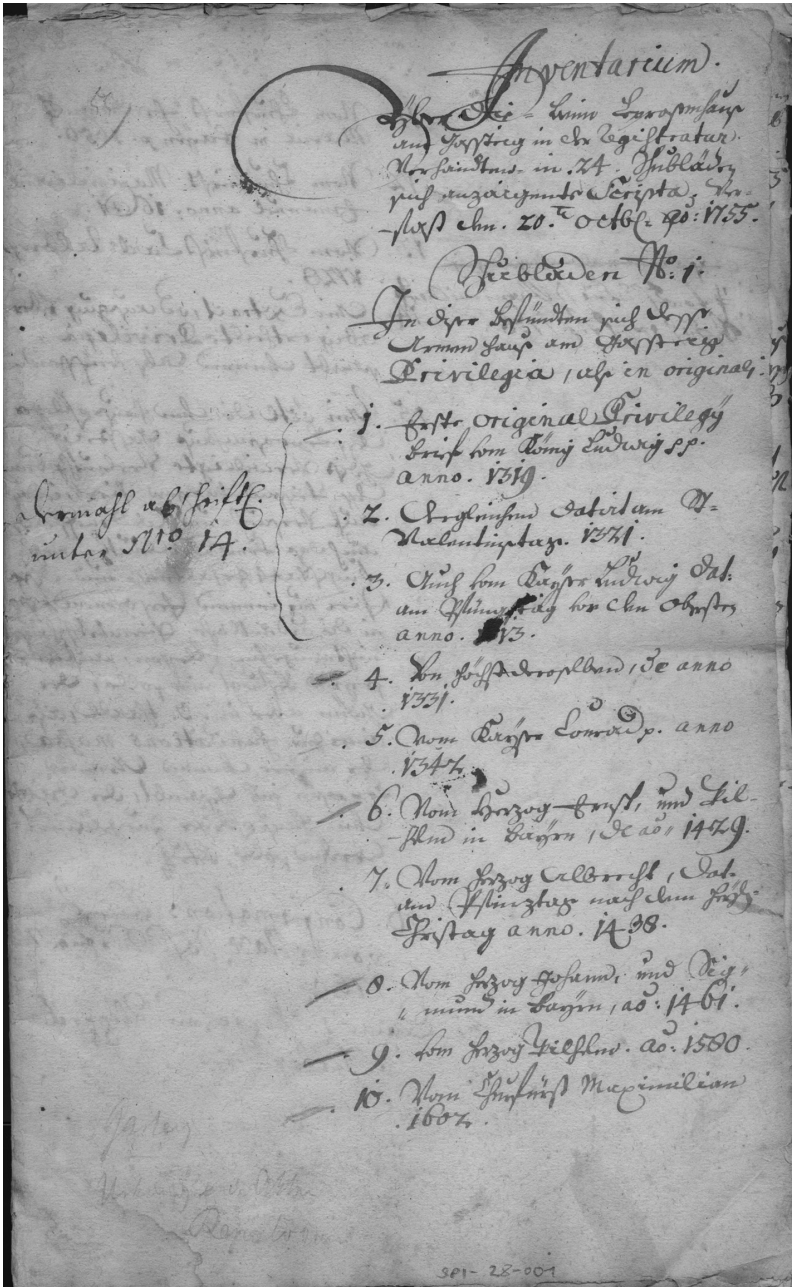 Inventarium.
Yber die beim Leprosenhaus
am Gasteig in der Registratur
Verhandtene in .24. Schubläden
sich anzaigente Scripta. Ver-
fast den. 20.t Octb: Ao: 1755.
Schubläden No: 1.
In diser befündten sich dess
Armen Haus am Gasteig
Privilegia, als in originali.
1. Erste original Privilegÿ
brief vom König Ludwig pp.
anno. 1319.
dermahl abschriftl.
unter Nro 14.
2. dergleichen datirt am St-
Valentinstag. 1321.
3. Auch vom Kayser Ludwig dat:
am Pfinztag vor den Obersten
anno.
4. Von höchstderoselben, de anno
1331.
5. Vom Kayser Conrad p. anno
1342.
6. Vom Herzog Ernst, und Wil-
helm in Bayrn, de ao. 1429.
7. Vom Herzog Albrecht, dat.
am Pfinztag nach dem
Christag anno. 1438.
8. Vom Herzog Johann, und Sig-
mund in Bayrn, ao: 1461.
9. Vom Herzog Wilhelm. ao: 1580.
10. Vom Churfürst Maximilian
1602.
SPI-28-001